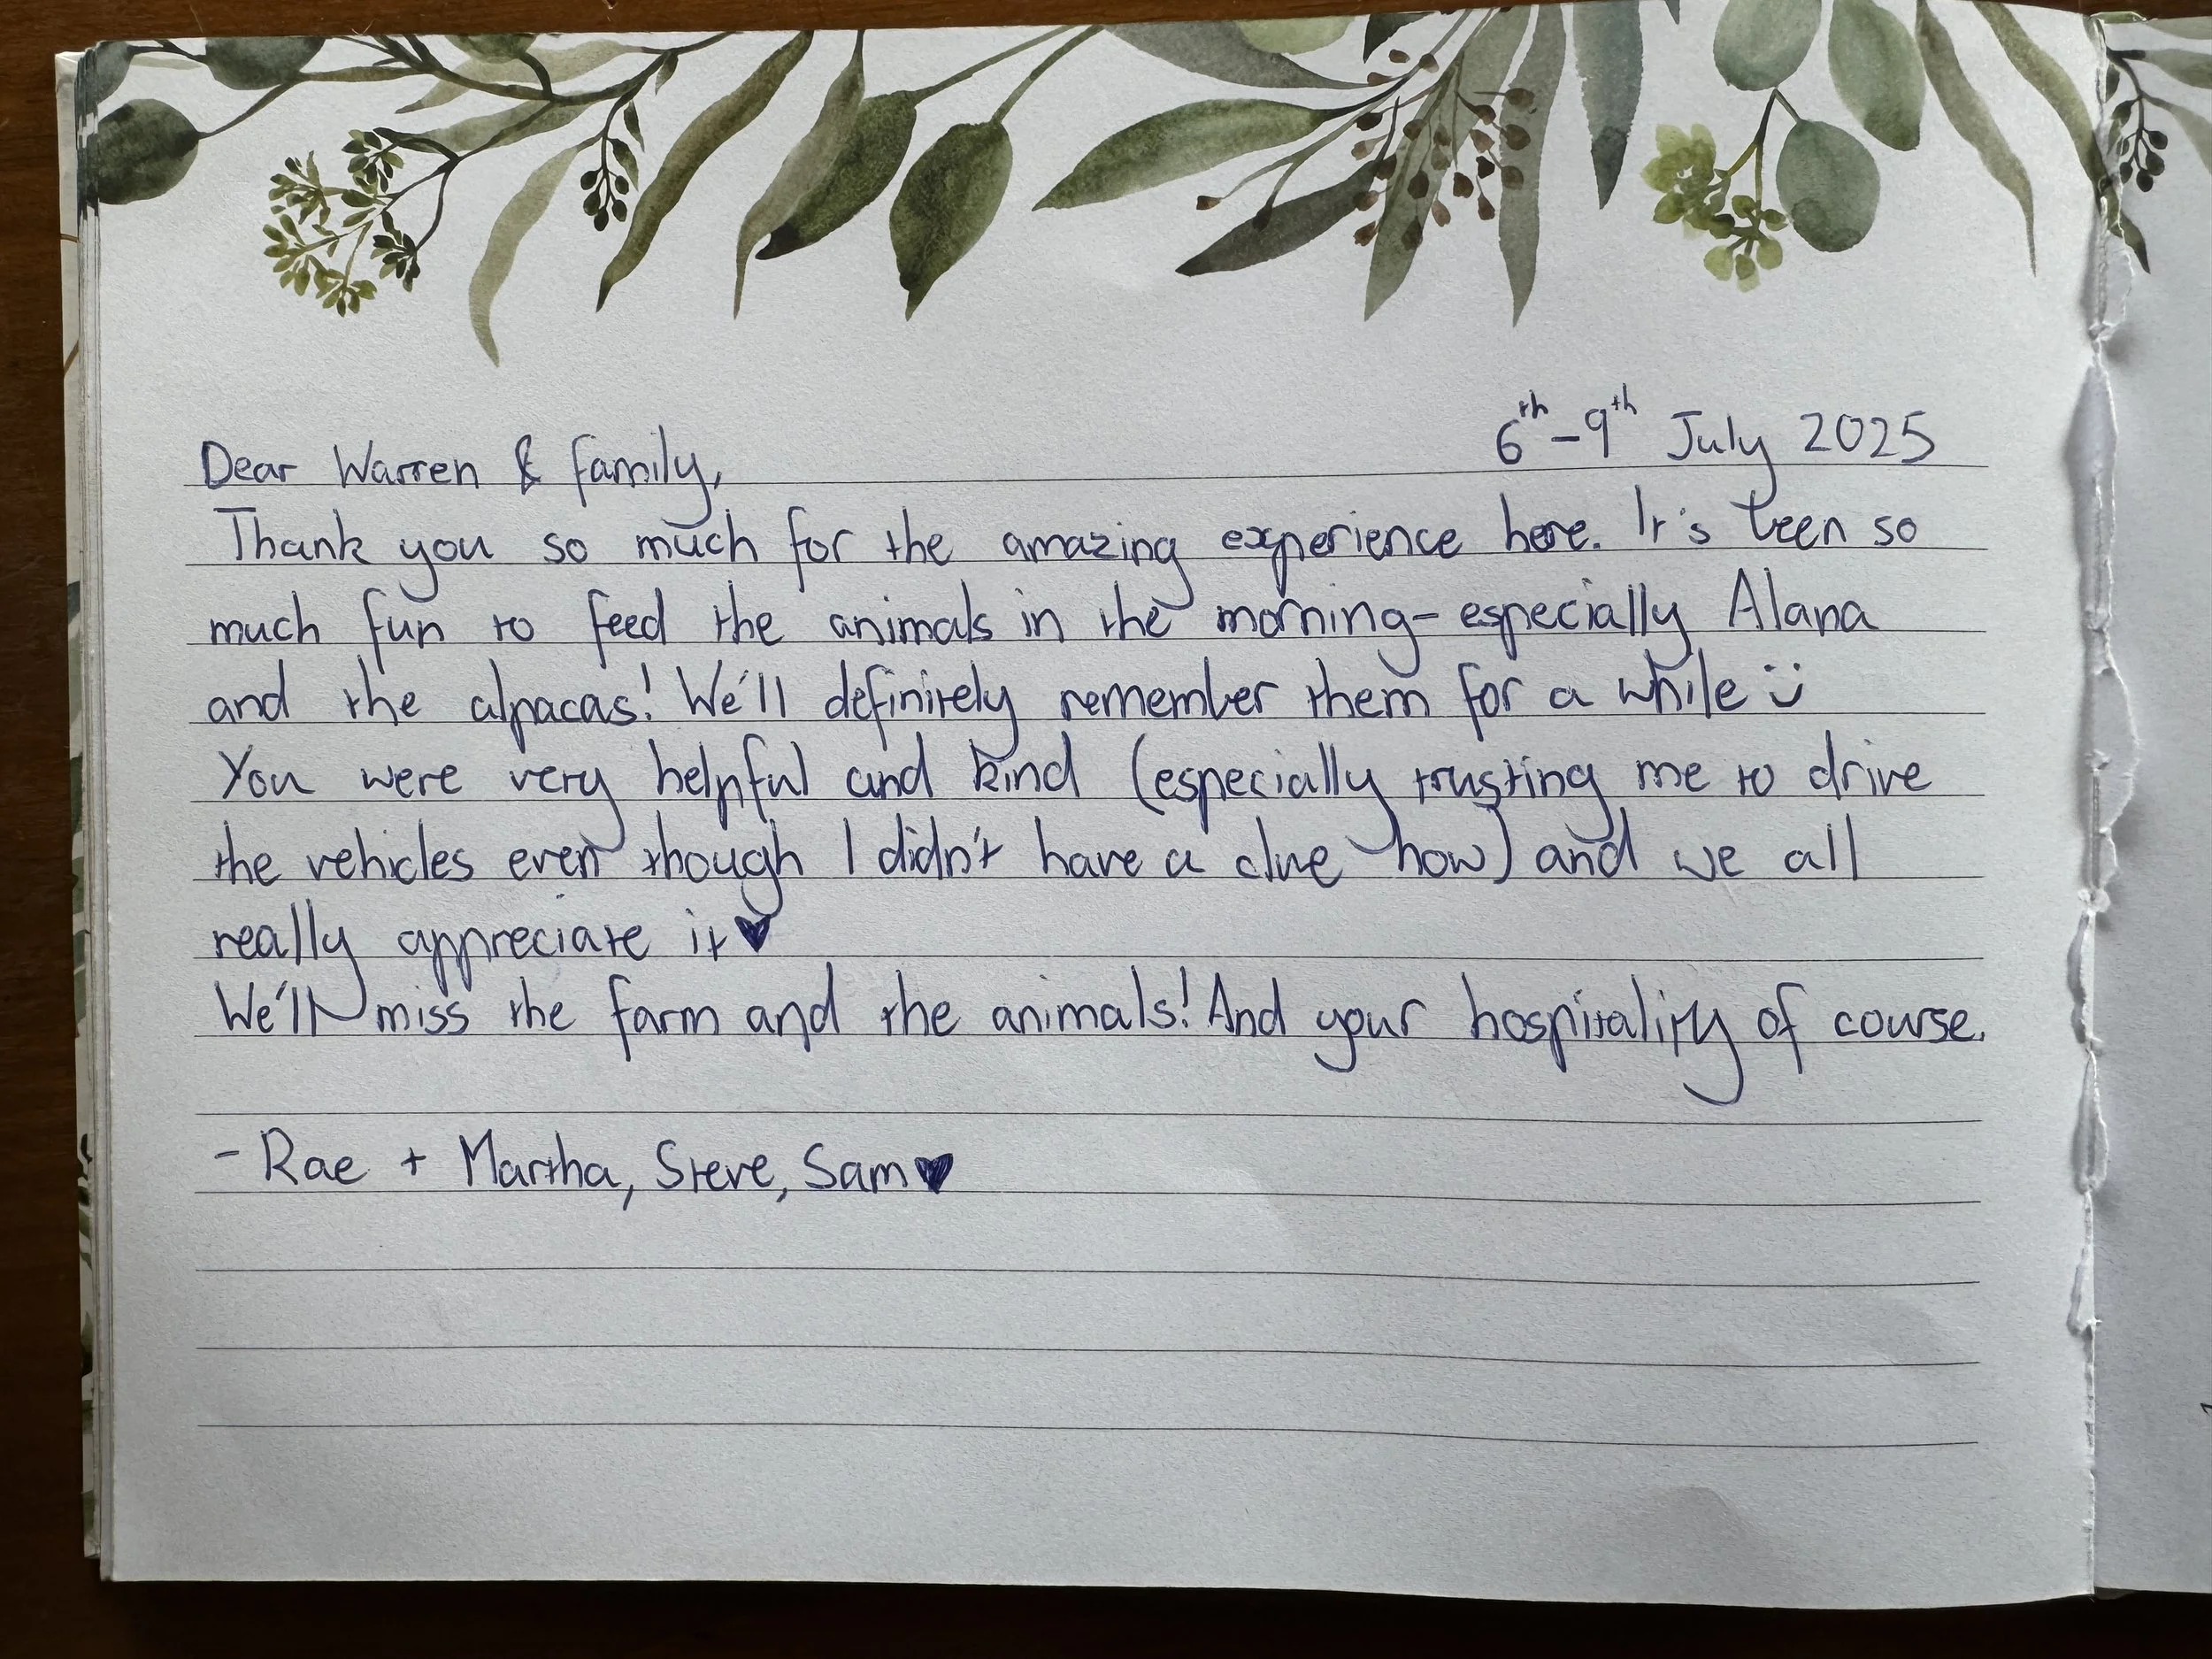 6th-9th July 2025
Dear Warren & family,
Thank you so much for the amazing experience here. It's been so
much fun to feed the animals in the morning- especially Alana
and the alpacas! We'll definitely remember them for a while :)
You were very helpful and kind (especially trusting me to drive
the vehicles even though I didn't have a clue how) and we all
really appreciate it♥
We'll miss the farm and the animals! And your hospitality of course.
- Rae + Martha, Steve, Sam♥